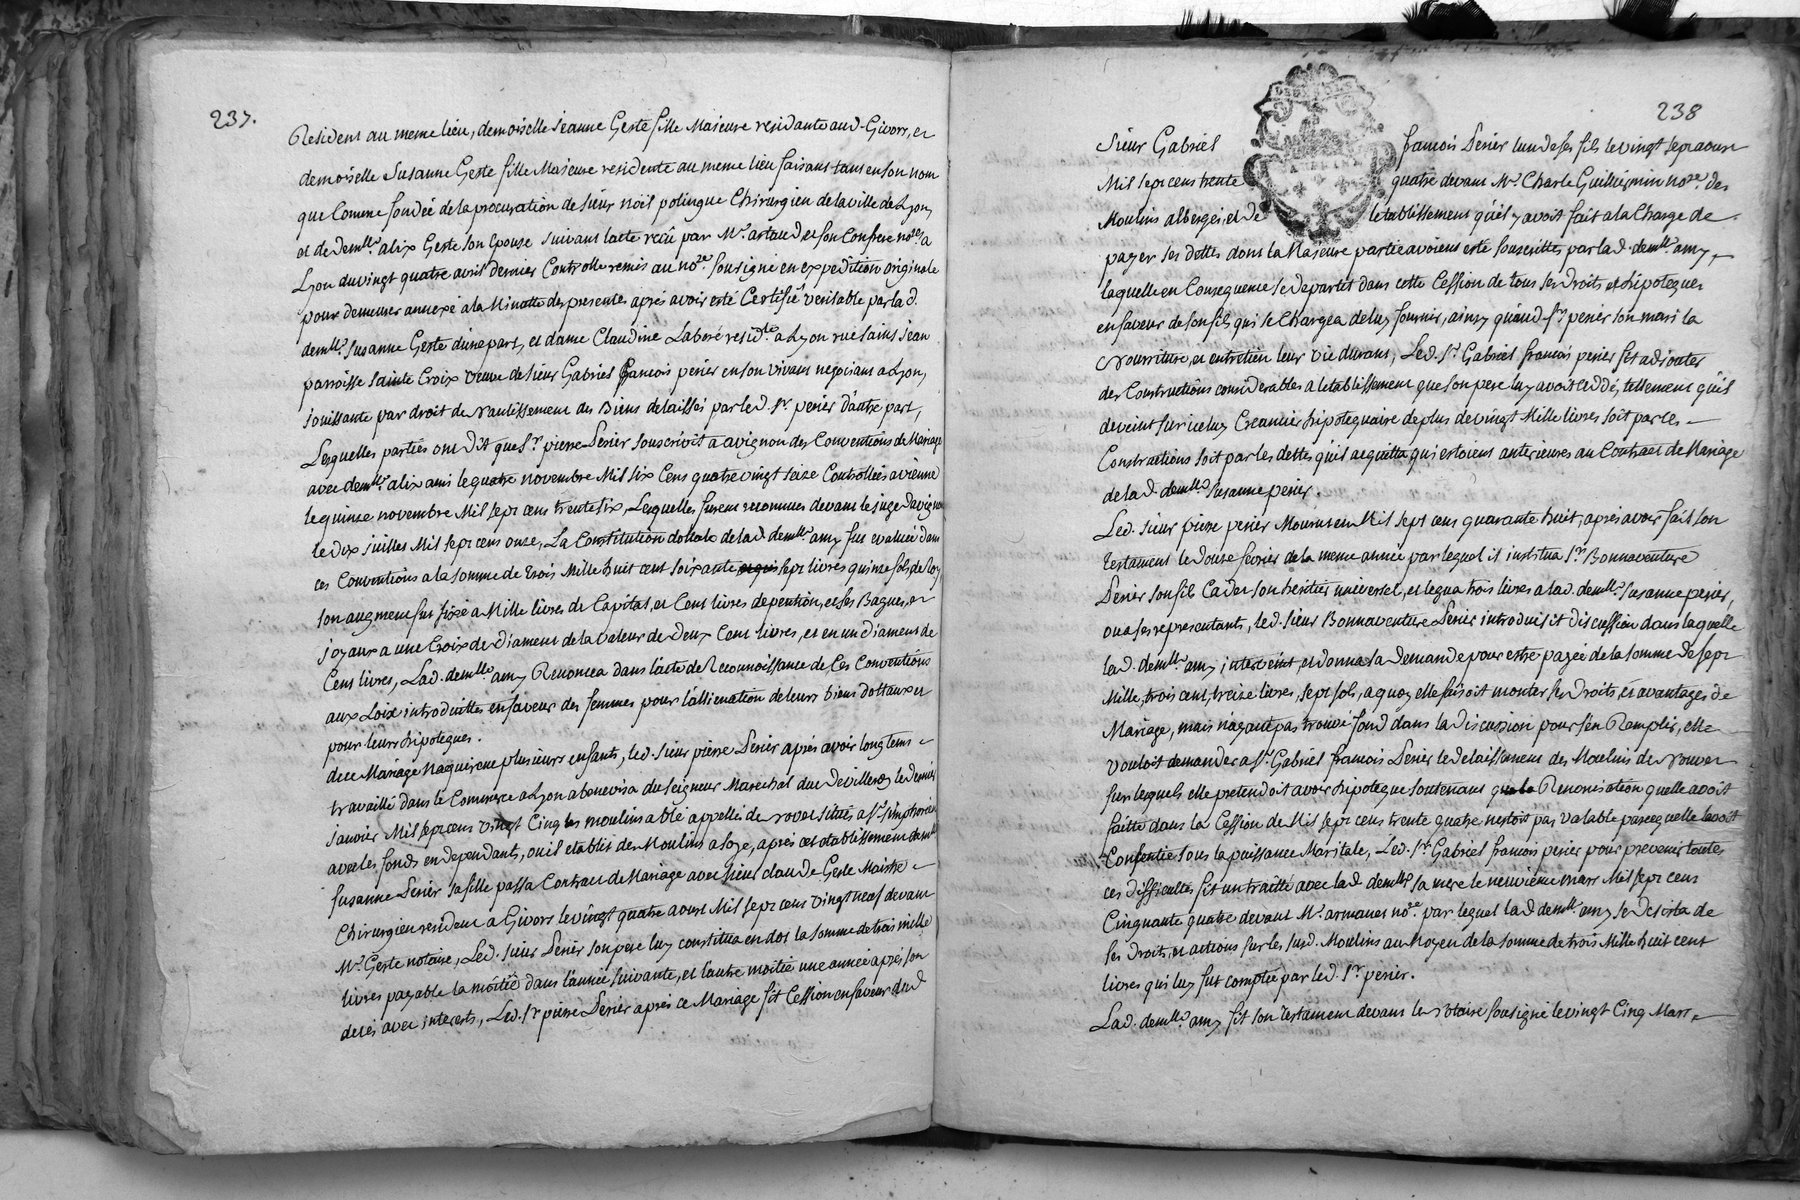 237.
Resident au meme lieu, demoiselle Jeanne Geste fille Majeure residante aud. Givors, et
demoiselle Susanne Geste fille Majeure residente au meme lieu faisant tant en son nom
que Comme fondée de la procuration de sieur noël polingue Chirurgien de la ville de Lyon,
et de demlle. alix Geste son Epouse suivant lacte recû par Me. artaud et son Confrere nores. a
Lyon du vingt quatre avril dernier Controlle remis au nore. soussigné en expedition originale
pour demeurer annexé a la Minutte des presentes aprés avoir esté Certifié veritable par lad.
demlle. Susanne Geste d'une part, et dame Claudine Laboré residte. a Lyon rue saint Jean
parroisse sainte Croix veuve de sieur Gabriel francois perier en son vivant negociant a Lyon,
jouissante par droit de nantissement des Biens delaissés par led. sr. perier d'autre part,
Lesquelles parties ont dit que sr. pierre Perier souscrivit a avignon des Conventions de Mariage
avec demlle. alix ami le quatre novembre Mil six Cens quatre vingt seize Controllées a vienne
le quinze novembre Mil sept cens trente six, Lesquelles furent reconnues devant le juge davignon
le dix juillet Mil sept cens onze, La Constitution dottale de lad. demlle. amy fut evaluée dans
ces Conventions a la somme de trois Mille huit cent soixante sept livres quinze sols de Roy,
son augment fut fixé a Mille livres de Capital, et Cent livres de pention, et ses Bagues, et
joyaux a une Croix de diament de la valeur de deux Cent livres, et en un diament de
Cent livres, Lad. demlle. amy Renonca dans l'acte de Reconnoissance de Ces Conventions
aux Loix introduittes en faveur des femmes pour l'allienation de leurs biens dottaux et
pour leurs hipoteques.
du Mariage Naquirent plusieurs enfants, led. sieur pierre Perier aprés avoir longtems
travaillé dans le Commerce a Lyon abenevisa du seigneur Marechal duc de villeroy le dernier
janvier Mil sept cens vingt Cinq les moulins a blé appellés de rover situés a st. simphorien
avec les fonds en dependants, ou il etablit des Moulins a soye, aprés cet etablissement demlle.
susanne Perier sa fille passa Contract de Mariage avec sieur claude Geste Maistre
Chirurgien resident a Givors le vingt quatre aoust Mil sept cens vingt neuf devant
Me. Geste notaire, Led. sieur Perier son pere luy constitua en dot la somme de trois mille
livres payable la moitié dans l'année suivante, et l'autre moitié une année aprés son
decés avec interets, Led. sr. pierre Perier aprés ce Mariage fit Cession en faveur dud.
238
sieur Gabriel francois Perier lun de ses fils le vingt sept aoust
Mil sept cens trente quatre devant Me. Charle Guillermin nore. des
Moulins albergés et de letablissement qu'il y avoit fait a la Charge de
payer ses dettes dont la Majeure partie avoient esté souscrittes par lad. demlle. amy,
laquelle en Consequence se departit dans cette Cession de tous ses droits et hipoteques
en faveur de son fils qui se Chargea de luy fournir, ainsy quaud. sr. perier son mari la
Nourriture, et entretien leur vie durant, Led. sr. Gabriel francois perier fit adjouter
des Constructions considerables a letablissement que son pere luy avoit cedé, tellement qu'il
devint sur iceluy Creancier hipotequaire de plus de vingt Mille livres soit par les
Constructions soit par les dettes qu'il acquitta qui estoient anterieures au Contract de Mariage
de lad. demlle. susanne perier.
Led. sieur pierre perier Mourut en Mil sept cens quarante huit, aprés avoir fait son
testament le douze fevrier de la meme année par lequel il institua sr. Bonnaventure
Perier son fils Cadet son heritier universel, et legua trois livres a lad. demlle. susanne perier,
ou a ses representants, led. sieur Bonnaventure Perier introduisit discussion dans laquelle
lad. demlle. amy intervint, et donna sa demande pour estre payée de la somme de sept
Mille, trois cent, treize livres, sept sols, a quoy elle faisoit monter ses droits, et avantages de
Mariage, mais nayant pas trouvé fond dans la discussion pour s'en Remplir, elle
vouloit demander a sr. Gabriel francois Perier le delaissement des Moulins de rover
sur lesquels elle pretendoit avoir hipoteque soutenant que la Renonciation quelle avoit
faitte dans la Cession de Mil sept cens trente quatre nestoit pas valable parcequelle lavoit
Consentie sous la puissance Maritale, Led. sr. Gabriel francois perier pour prevenir toutes
ces difficultés fit un traitté avec lad. demlle. sa mere le neuvieme mars Mil sept cens
Cinquante quatre devant Me. armanet nore. par lequel lad. demlle. amy se desista de
ses droits, et actions sur les susd. Moulins au Moyen de la somme de trois Mille huit cent
livres qui luy fut comptée par led. sr. perier.
Lad. demlle. amy fit son testament devant le Notaire soussigné le vingt Cinq Mars